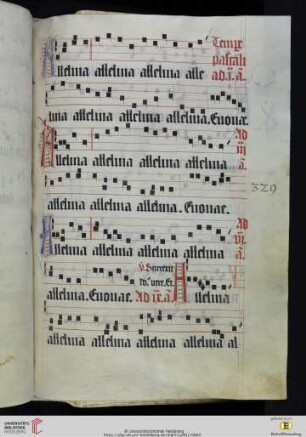 Tempe
paschali
ad .i. a.
Alleluia alleluia alleluia alle
luia alleluia alleluia alleluia. Euouae.
Ad
iii
a.
Alleluia alleluia alleluia alleluia
329
alleluia alleluia alleluia. Euouae.
Ad
vi.
a.
Alleluia alleluia alleluia alleluia
V. Surrexit
alleluia. Euouae. Ad ix. a. Alleluia
alleluia alleluia alleluia alleluia al
UNIVERSITÄTS-
BIBLIOTHEK
HEIDELBERG
© Universitätsbibliothek Heidelberg